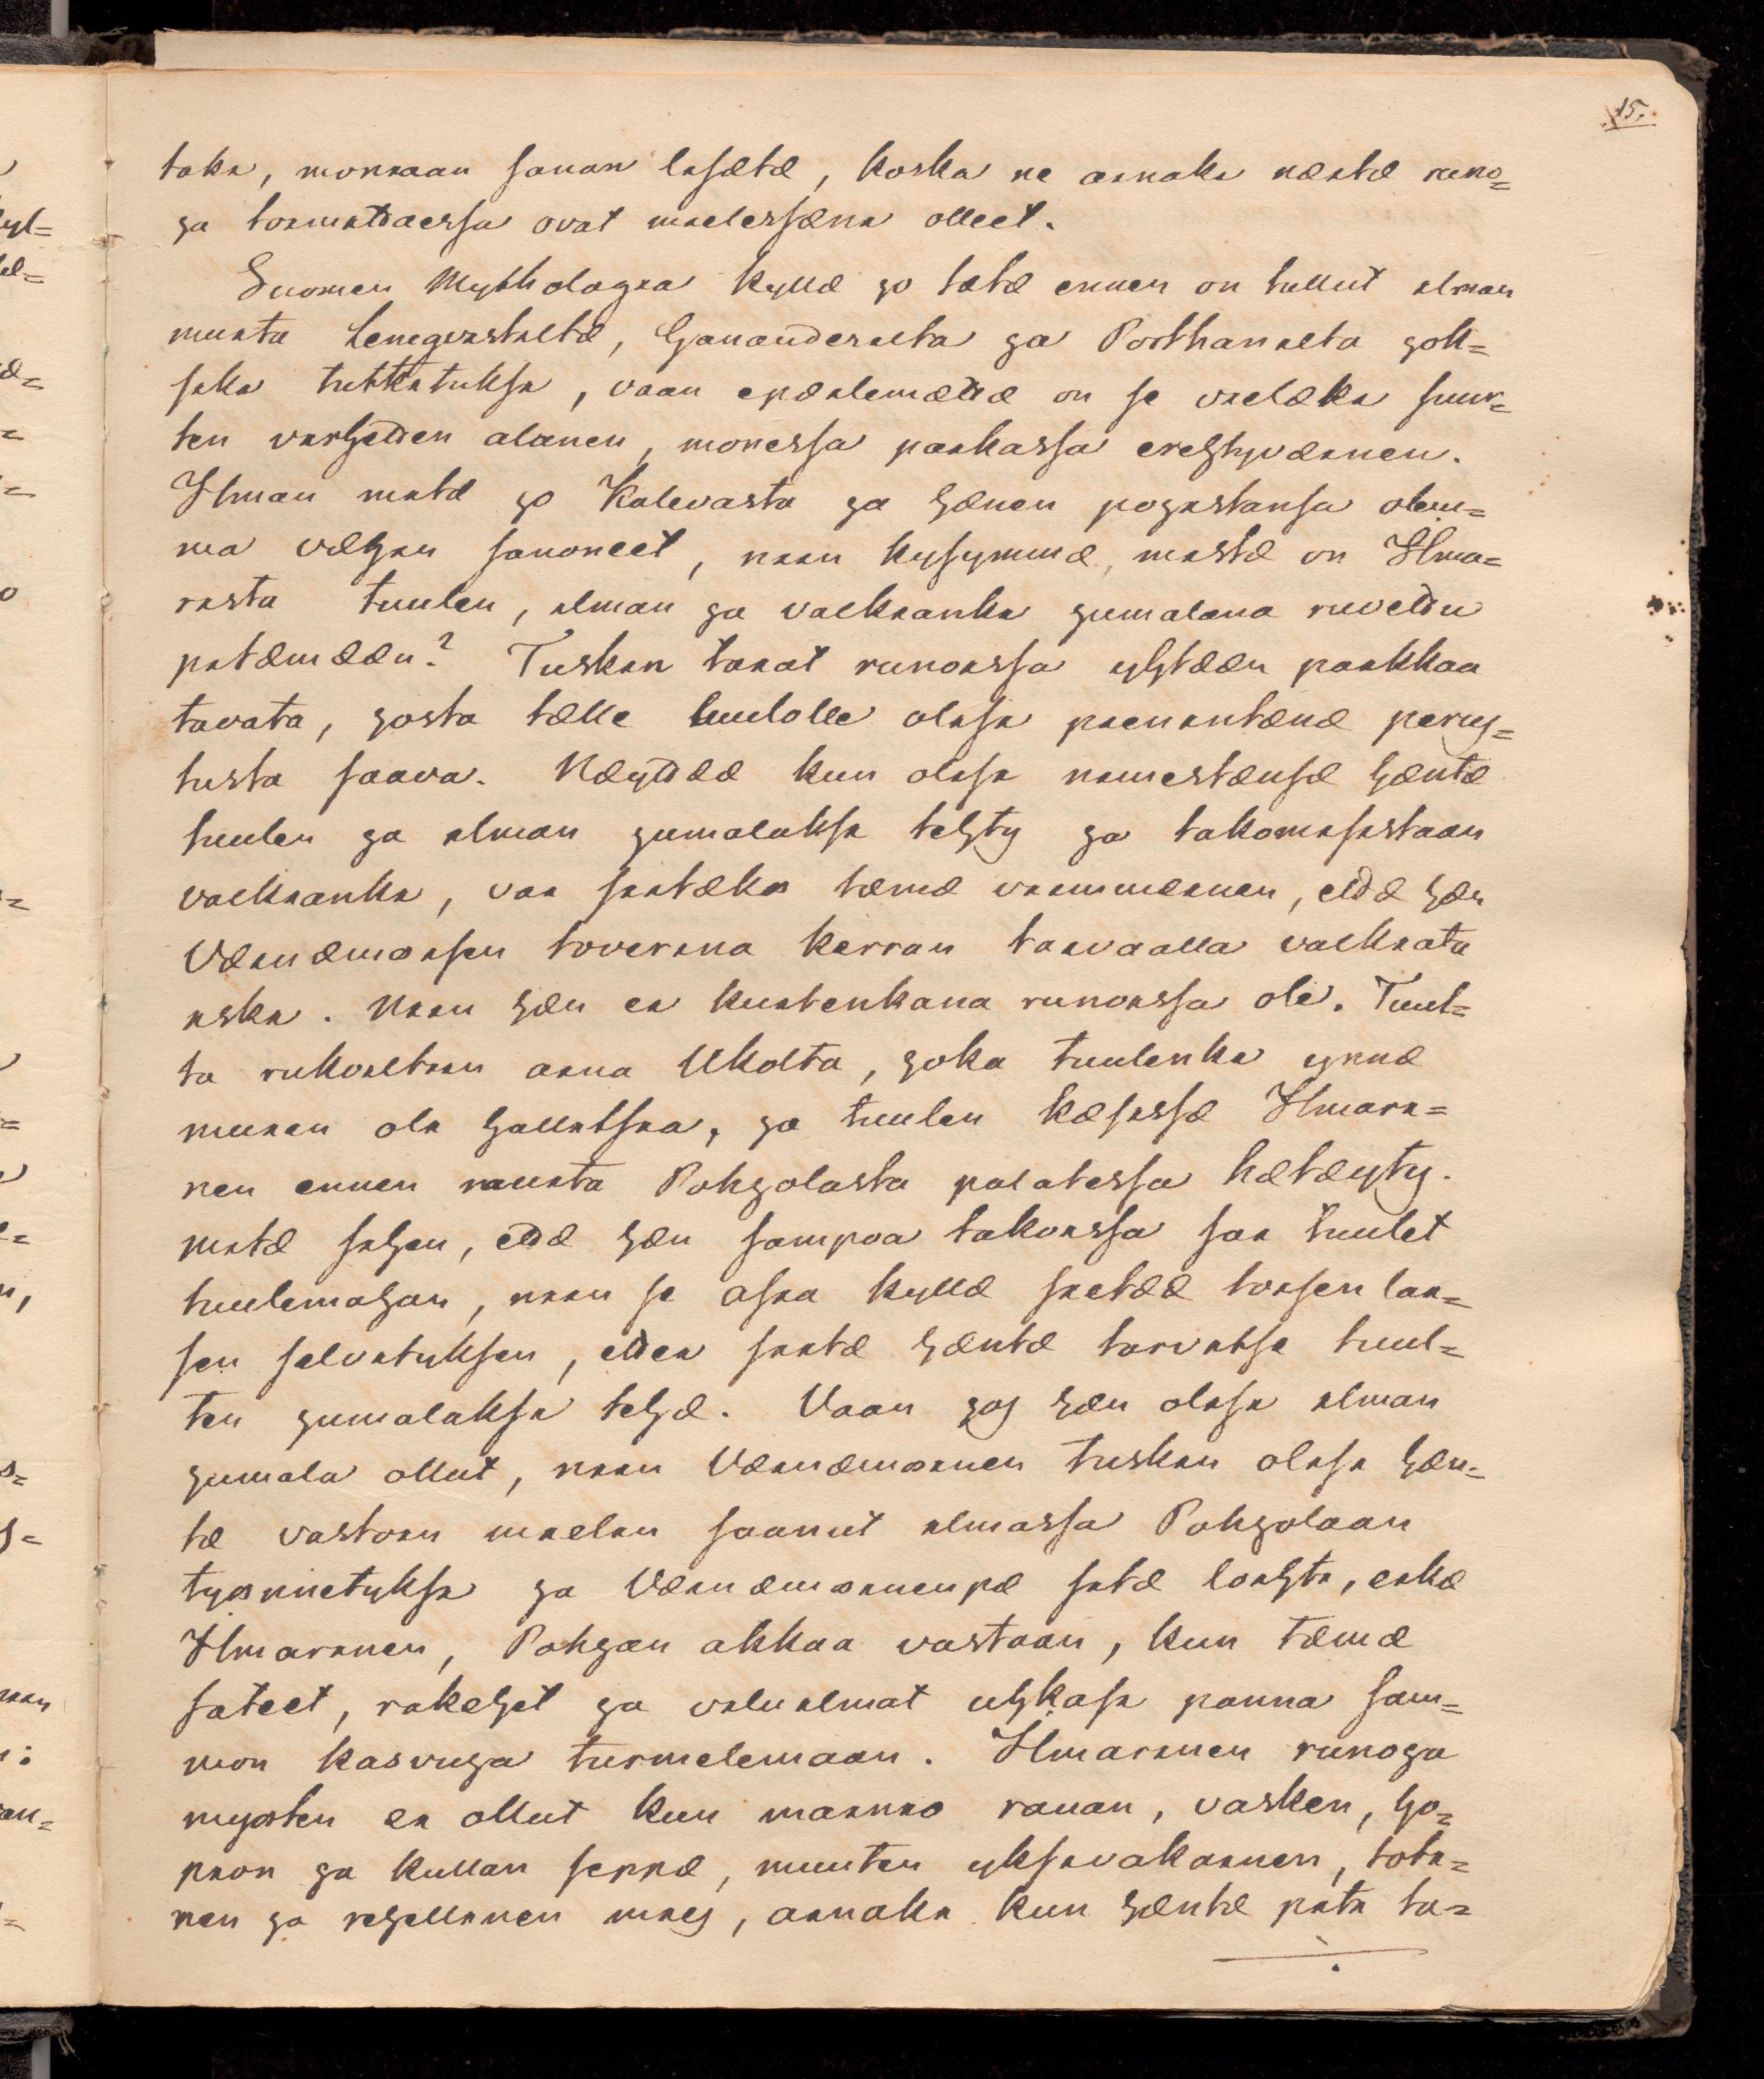 15.
toki, moniaan sanan lisätä, koska ne ainaki näitä runo=
ja toimittaessa ovat mielessäni olleet.
Suomen Mythologia kyllä jo tätä ennen on tullut ilman
muita Lenqvistiltä, Gananderilta ja Porthanilta jok=
siki tutkituksi, vaan epäilemättä on se vieläki suur=
ten virhetten alainen, monessa paikassa erehtyväinen.
Ilman mitä jo Kalevasta ja hänen pojistansa olem=
ma vähän sanoneet, niin kysymmä, mistä on Ilma=
rista tuulen, ilman ja valkianki jumalana ruvettu
pitämään? Tuskin taiat runoissa yhtään paikkaa
tavata, josta tälle luulolle olisi pienintänä perus=
tusta saava. Näyttää kun olisi nimestänsä häntä
tuulen ja ilman jumalaksi tehty ja takomisistaan
valkianki, vai siitäkö tämä viimmeinen, että hän
Väinämöisen toverina kerran taivaalla valkiata
iski. Niin hän ei kuitenkana runoissa ole. Tuul=
ta rukoiltiin aina Ukolta, joka tuulenki ynnä
muien oli hallitsia, ja tuulen käsissä Ilmari=
nen ennen muita Pohjolasta palatessa hätäyty.
Mitä siihen, että hän sampoa takoissa sai tuulet
tuulemahan, niin se asia kyllä sietää toisen lai=
sen selvityksen, ettei siitä häntä tarvitse tuul=
ten jumalaksi tehä. Vaan jos hän olisi ilman
jumala ollut, niin Väinämöinen tuskin olisi hän=
tä vastoin mielin saanut ilmassa Pohjolaan
työnnetyksi ja Väinämöinenpä sitä loihti, eikä
Ilmarinen, Pohjan akkaa vastaan, kun tämä
sateet, rakehet ja viluilmat uhkasi panna sam=
mon kasvuja turmelemaan. Ilmarinen runoja
myöten ei ollut kun mainio rauan, vasken, ho=
pian ja kullan seppä, muuten yksivakainen, toti=
nen ja rehellinen mies, ainaki kun häntä piti ta=